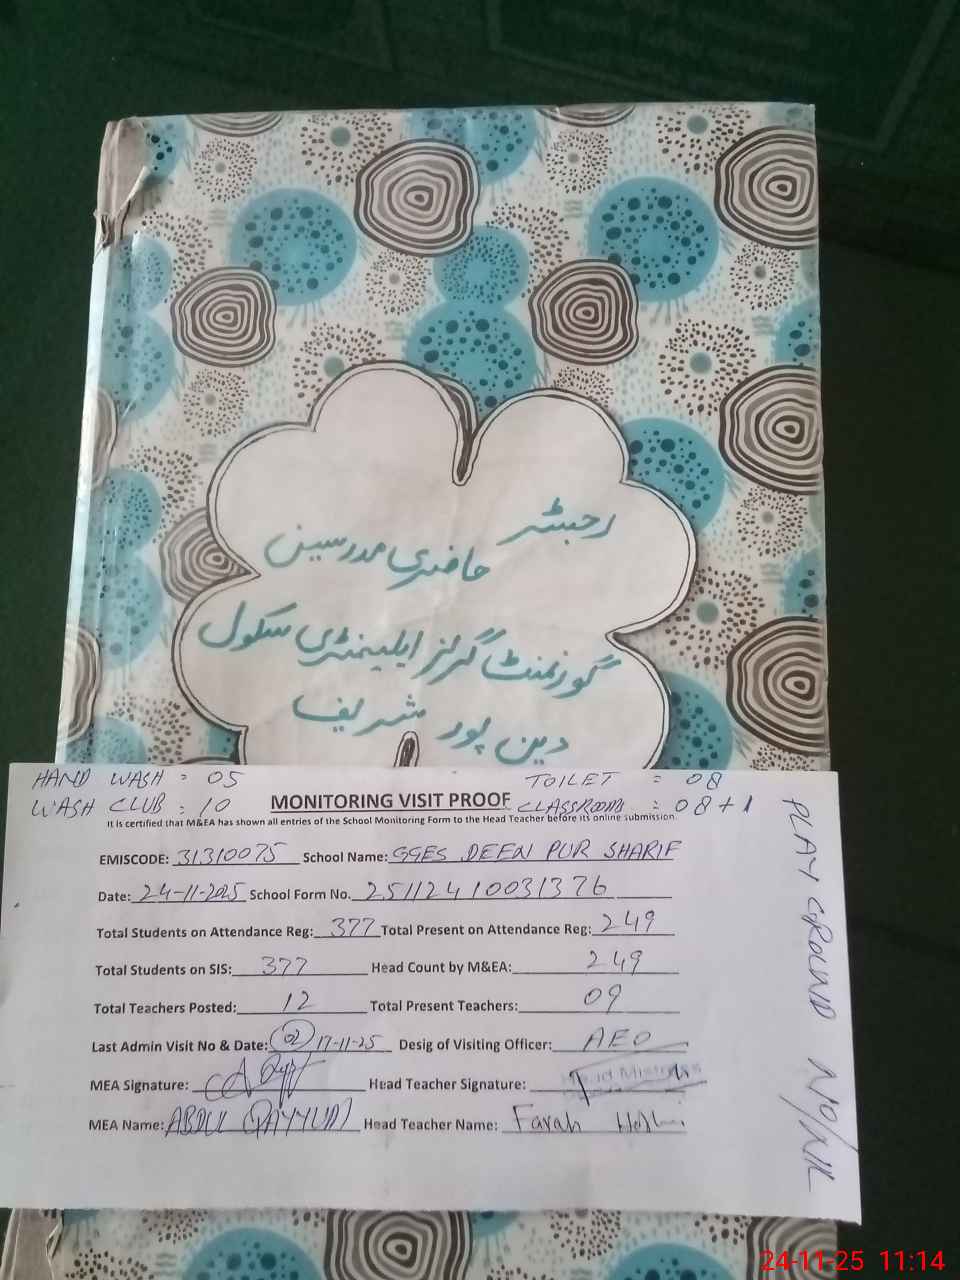 رجسٹر
حاضری مدرسین
گورنمنٹ گرلز ایلیمنٹری سکول
دین پور شریف
HAND WASH : 05
TOILET : 08
WASH CLUB : 10
CLASSROOM : 08+1
MONITORING VISIT PROOF
It is certified that M&EA has shown all entries of the School Monitoring Form to the Head Teacher before its online submission.
EMISCODE: 31310075 School Name: GGES DEEN PUR SHARIF
Date: 24-11-2025 School Form No. 25112410031376
Total Students on Attendance Reg: 377 Total Present on Attendance Reg: 249
Total Students on SIS: 377 Head Count by M&EA: 249
Total Teachers Posted: 12 Total Present Teachers: 09
Last Admin Visit No & Date: 02 17-11-25 Desig of Visiting Officer: AEO
MEA Signature: Head Teacher Signature: Head Mistress
MEA Name: ABDUL QAYYUM Head Teacher Name: Farah
PLAY GROUND NO/NIL
24-11-25 11:14